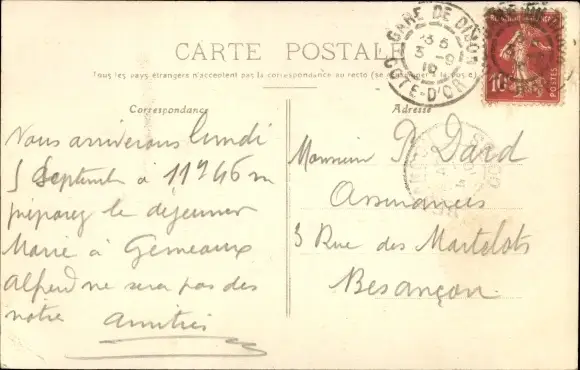 CARTE POSTALE
Tous les pays étrangers n'acceptent pas la correspondance au recto (se à la poste)
Correspondance
Adresse
GARE DE DIJON
3 -9
COTE-D'OR
10
POSTES
Nous arriverons lundi
5 Septembre à 11h46 m
préparez le déjeuner
Marie à Gemeaux
Alfred ne sera pas des
notre Amitiés
Monsieur P. Dard
Assurances
3 Rue des Martelots
Besançon